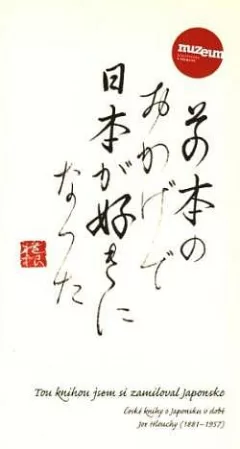 muzeum
その本の
おかげで
日本が好きに
なった
Tou knihou jsem si zamiloval Japonsko
České knihy o Japonsku v době
Joe Hlouchy (1881–1957)